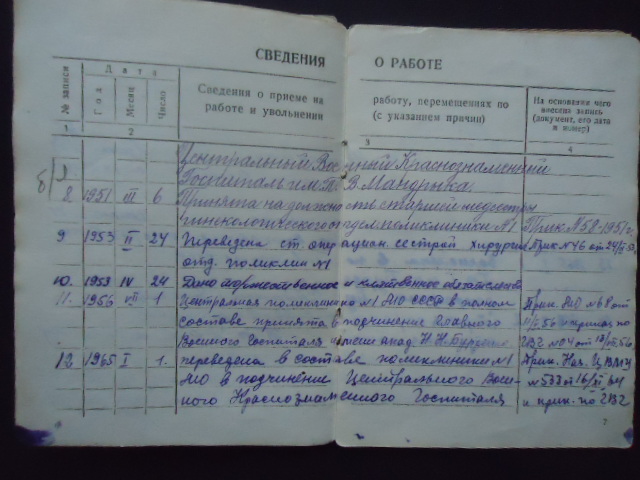 СВЕДЕНИЯ О РАБОТЕ
№ записи
Дата
Год
Месяц
Число
Сведения о приеме на
работе и увольнении
работу, перемещениях по
(с указанием причин)
На основании чего
внесена запись
(документ, его дата
и номер)
1 2 3 4
Центральный Военный Краснознаменный
Госпиталь им. П. В. Мандрыка
8 1951 III 6 Принята на должность старшей медсестры
гинекологического отдел. поликлиники №1 Прик №58-1951г.
9 1953 II 24 Переведена ст. операцион. сестрой хирургич. Прик №46 от 24/II-53г
отд. поликлин №1
10. 1953 IV 24 Дано торжественное и клятвенное обязательство
11. 1956 VII 1 Центральная поликлиника №1 МО СССР в полном Прик. МО №69 от
составе принята в подчинение Главного
Военного Госпиталя имени акад. Н. Н. Бурденко ГВГ №04 от
12 1965 I 1. переведена в составе поликлиники №1 Прик. Нач. ЦВМУ
МО в подчинение Центрального Воен- №533 от 16/XI 64
ного Краснознаменного Госпиталя и прик. по
6
7